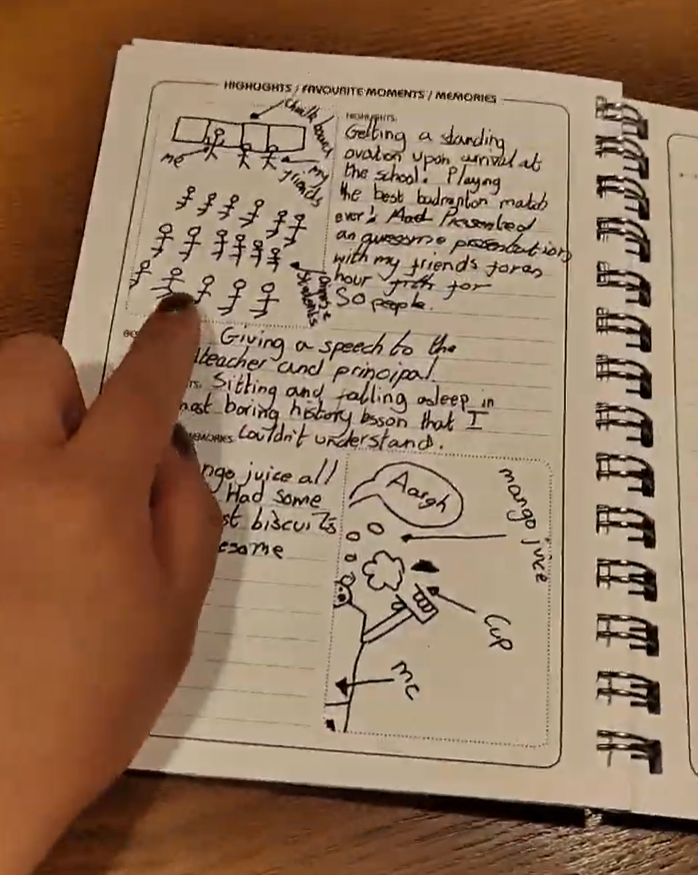 HIGHLIGHTS / FAVOURITE MOMENTS / MEMORIES
Chalk board
me
my friends
HIGHLIGHTS:
Getting a standing
ovation upon arrival at
the school. Playing
the best badminton match
ever! Presented
an awesome presentation
with my friends for an
hour for
50 people.
Students
Giving a speech to the
teacher and principal.
Sitting and falling asleep in
boring history lesson that I
couldn't understand.
MEMORIES
juice all
Had some
biscuits
Aargh
mango juice
Cup
me